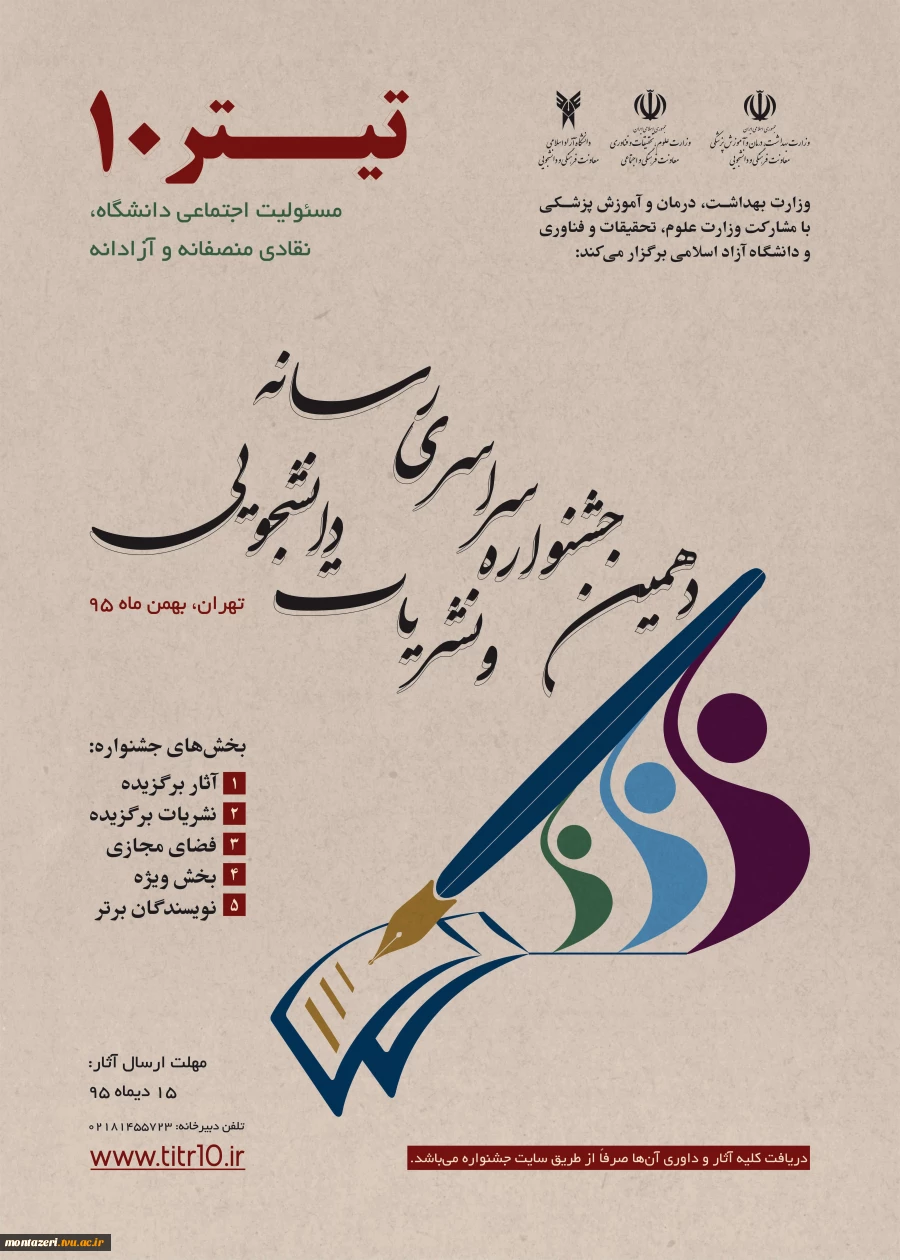 جمهوری اسلامی ایران
وزارت بهداشت، درمان و آموزش پزشکی
معاونت فرهنگی و دانشجویی
جمهوری اسلامی ایران
وزارت علوم، تحقیقات و فناوری
معاونت فرهنگی و اجتماعی
دانشگاه آزاد اسلامی
معاونت فرهنگی و دانشجویی
وزارت بهداشت، درمان و آموزش پزشکی
با مشارکت وزارت علوم، تحقیقات و فناوری
و دانشگاه آزاد اسلامی برگزار می‌کند:
تیتر ۱۰
مسئولیت اجتماعی دانشگاه،
نقادی منصفانه و آزادانه
دهمین جشنواره سراسری رسانه
و نشریات دانشجویی
تهران، بهمن ماه ۹۵
بخش‌های جشنواره:
۱ آثار برگزیده
۲ نشریات برگزیده
۳ فضای مجازی
۴ بخش ویژه
۵ نویسندگان برتر
مهلت ارسال آثار:
۱۵ دیماه ۹۵
تلفن دبیرخانه: ۰۲۱۸۱۴۵۵۷۲۳
www.titr10.ir
دریافت کلیه آثار و داوری آن‌ها صرفاً از طریق سایت جشنواره می‌باشد.
montazeri.tvu.ac.ir